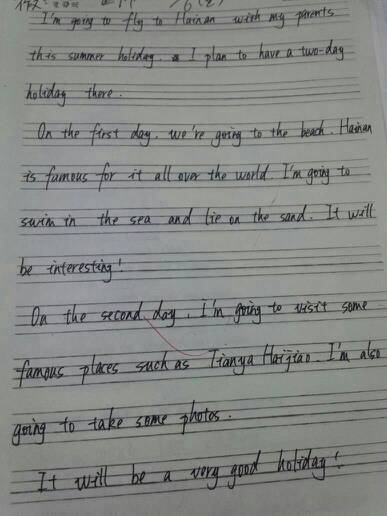 I'm going to fly to Hainan with my parents
this summer holiday. I plan to have a two-day
holiday there.
On the first day, we're going to the beach. Hainan
is famous for it all over the world. I'm going to
swim in the sea and lie on the sand. It will
be interesting!
On the second day, I'm going to visit some
famous places such as Tianya Haijiao. I'm also
going to take some photos.
It will be a very good holiday!